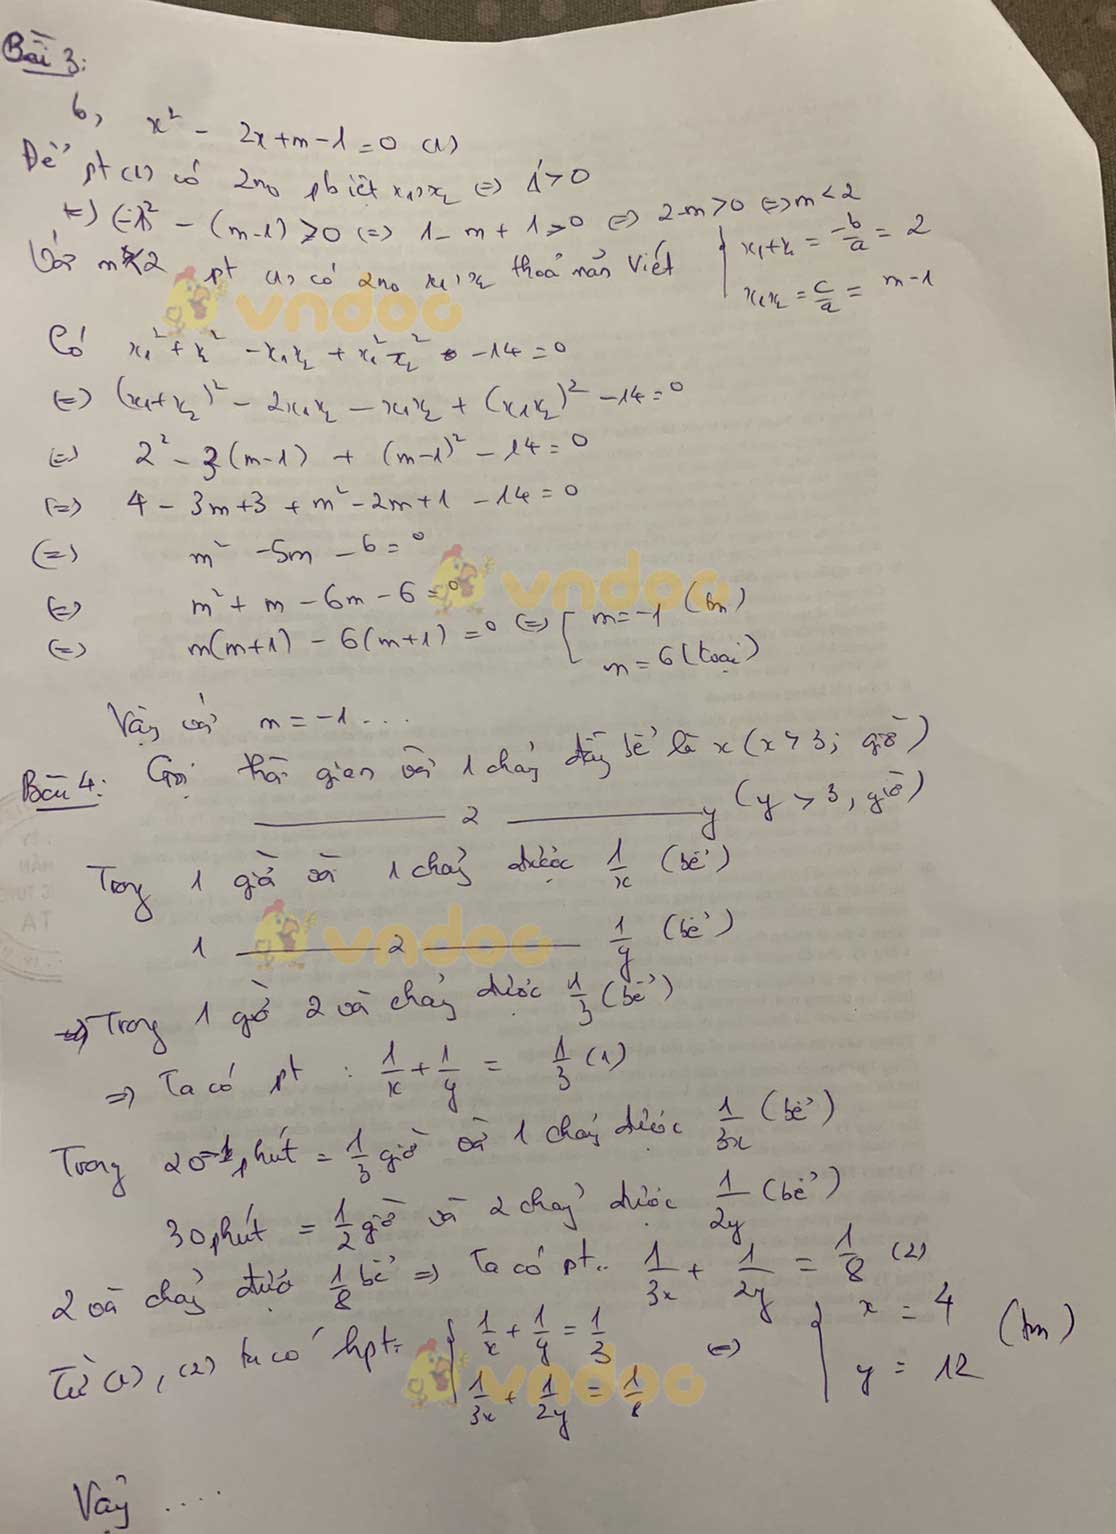 Bài 3:
b, x² - 2x + m - 1 = 0 (1)
Để pt (1) có 2 no pbiệt x₁, x₂ ⇔ Δ' > 0
⇔ (-1)² - (m-1) > 0 ⇔ 1 - m + 1 > 0 ⇔ 2-m > 0 ⇔ m < 2
Với m < 2 pt (1) có 2no x₁, x₂ thoả mãn Viét { x₁ + x₂ = -b/a = 2
x₁x₂ = c/a = m - 1
Có x₁² + x₂² - x₁x₂ + x₁²x₂² - 14 = 0
⇔ (x₁+x₂)² - 2x₁x₂ - x₁x₂ + (x₁x₂)² - 14 = 0
⇔ 2² - 3(m-1) + (m-1)² - 14 = 0
⇔ 4 - 3m + 3 + m² - 2m + 1 - 14 = 0
⇔ m² - 5m - 6 = 0
⇔ m² + m - 6m - 6 = 0
⇔ m(m+1) - 6(m+1) = 0 ⇔ [ m = -1 (tm)
m = 6 (loại)
Vậy với m = -1 ....
Bài 4: Gọi thời gian vòi 1 chảy đầy bể là x (x > 3; giờ)
——— 2 ——— y (y > 3, giờ)
Trong 1 giờ vòi 1 chảy được 1/x (bể)
1 ——— 2 ——— 1/y (bể)
⇒ Trong 1 giờ 2 vòi chảy được 1/3 (bể)
⇒ Ta có pt : 1/x + 1/y = 1/3 (1)
Trong 20 phút = 1/3 giờ vòi 1 chảy được 1/3x (bể)
30 phút = 1/2 giờ vòi 2 chảy được 1/2y (bể)
2 vòi chảy được 1/8 bể ⇒ Ta có pt: 1/3x + 1/2y = 1/8 (2)
Từ (1), (2) ta có hpt: { 1/x + 1/y = 1/3 ⇔ { x = 4 (tm)
1/3x + 1/2y = 1/8 y = 12
Vậy ....
vndoc
vndoc
vndoc
vndoc